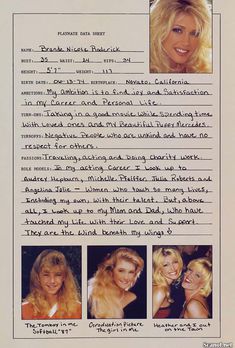 PLAYMATE DATA SHEET
NAME: Brande Nicole Roderick
BUST: 35 WAIST: 24 HIPS: 34
HEIGHT: 5'7" WEIGHT: 117
BIRTH DATE: 06-13-74 BIRTHPLACE: Novato, California
AMBITIONS: My Ambition is to find joy and Satisfaction
in my Career and Personal Life.
TURN-ONS: Taking in a good movie While Spending time
With Loved ones and my Beautiful Puppy Mercedes.
TURNOFFS: Negative People who are unkind and have no
respect for others.
PASSIONS: Traveling, acting and Doing Charity work.
ROLE MODELS: In my acting Career I Look up to
Audrey Hepburn, Michelle Pfeiffer, Julia Roberts and
Angelina Jolie - Women who touch so many Lives,
Including my own, with their talent. But, above
all, I Look up to my Mom and Dad, Who have
touched my Life with their Love and Support.
They are the Wind beneath my Wings
The Tomboy in me
Softball "87"
Graduation Picture
The girl in me
Heather and I out
on the Town